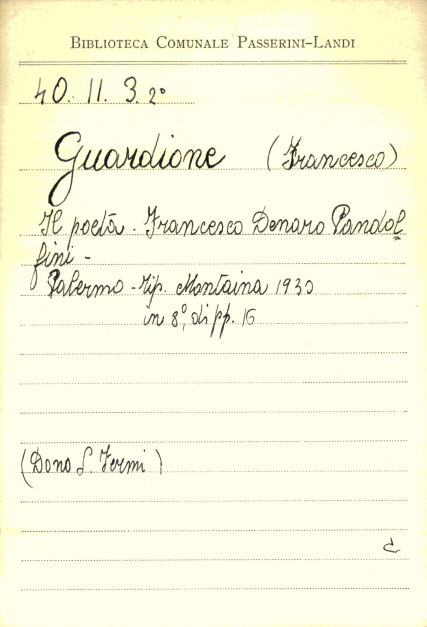 BIBLIOTECA COMUNALE PASSERINI-LANDI
40. 11. 3. 2°
Guardione (Francesco)
Il poeta - Francesco Denaro Pandol
fini -
Palermo - Tip. Montaina 1930
in 8°, di pp. 16
(Dono S. Fermi)